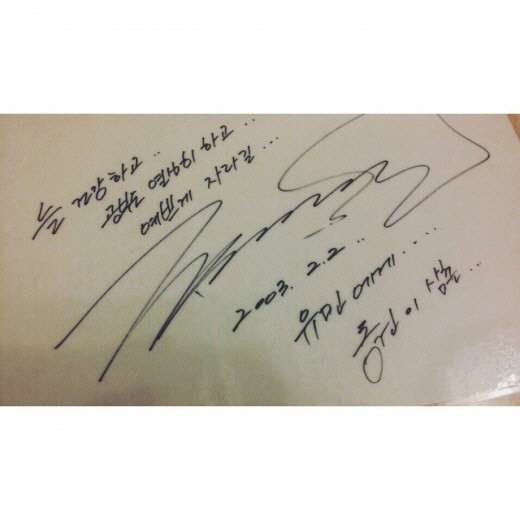 늘 건강하고..
공부도 열심히 하고...
예쁘게 자라길...
2003. 2. 2..
유민에게....
삼촌...